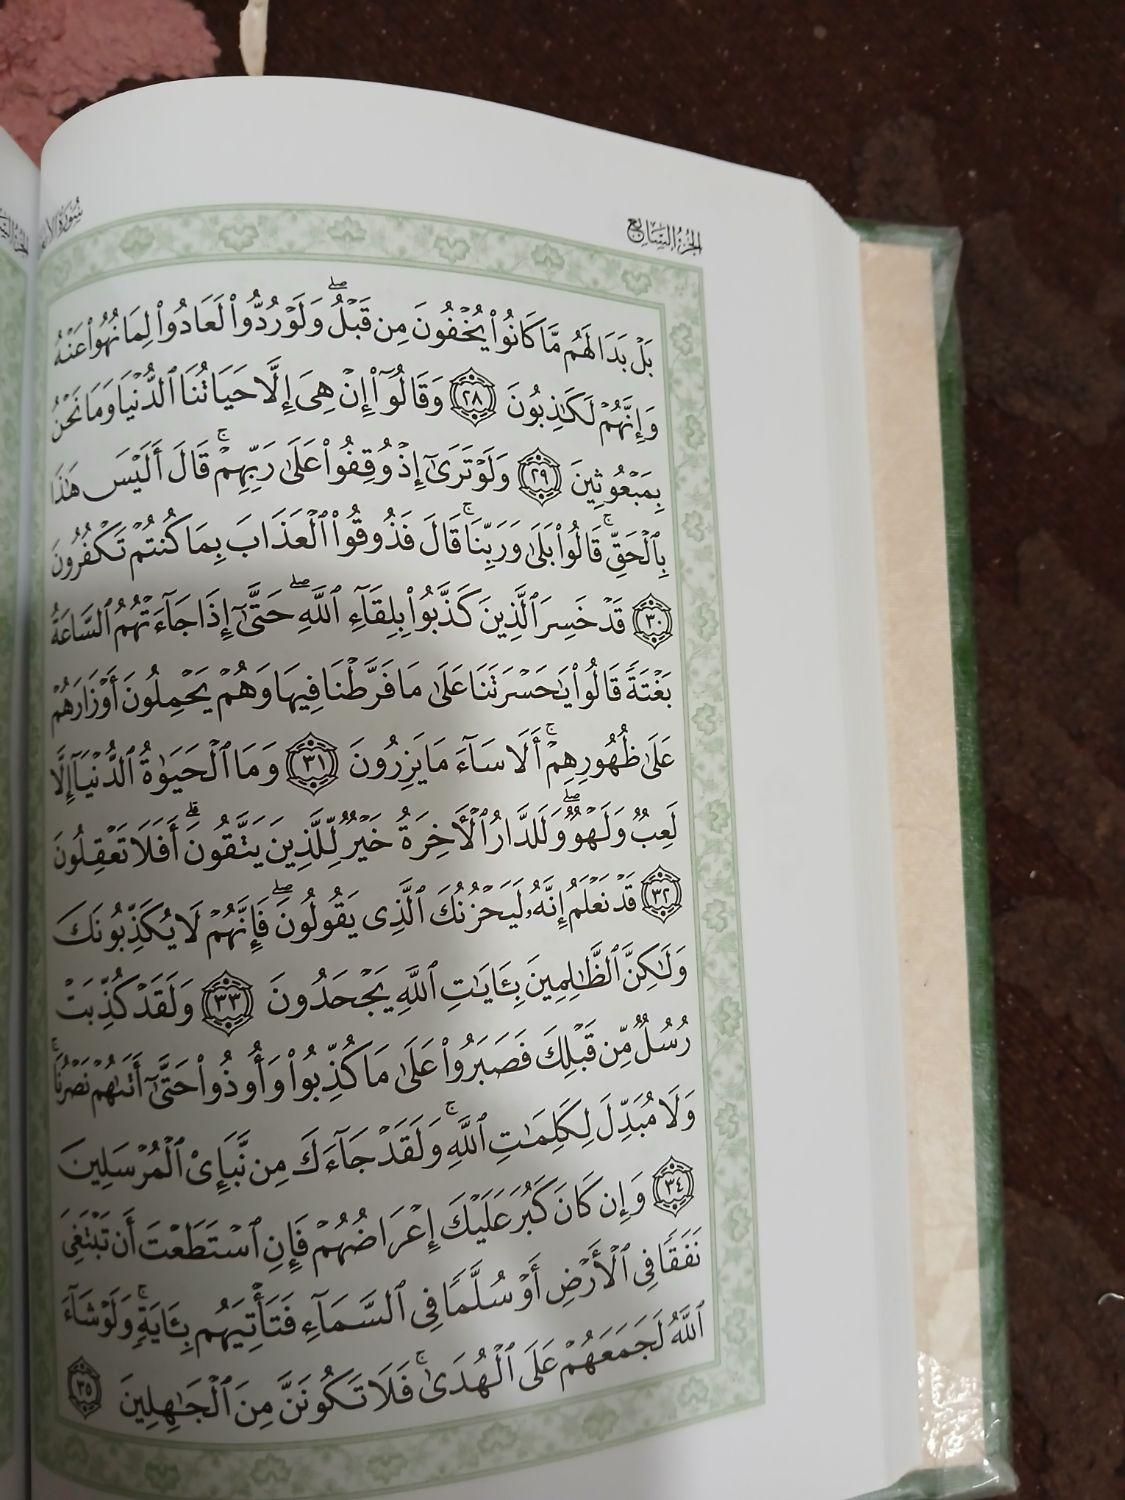 الجزء السابع
بَلْ بَدَا لَهُم مَّا كَانُوا۟ يُخْفُونَ مِن قَبْلُ ۖ وَلَوْ رُدُّوا۟ لَعَادُوا۟ لِمَا نُهُوا۟ عَنْهُ
وَإِنَّهُمْ لَكَـٰذِبُونَ ٢٨ وَقَالُوٓا۟ إِنْ هِىَ إِلَّا حَيَاتُنَا ٱلدُّنْيَا وَمَا نَحْنُ
بِمَبْعُوثِينَ ٢٩ وَلَوْ تَرَىٰٓ إِذْ وُقِفُوا۟ عَلَىٰ رَبِّهِمْ ۚ قَالَ أَلَيْسَ هَـٰذَا
بِٱلْحَقِّ ۚ قَالُوا۟ بَلَىٰ وَرَبِّنَا ۚ قَالَ فَذُوقُوا۟ ٱلْعَذَابَ بِمَا كُنتُمْ تَكْفُرُونَ
٣٠ قَدْ خَسِرَ ٱلَّذِينَ كَذَّبُوا۟ بِلِقَآءِ ٱللَّهِ ۖ حَتَّىٰٓ إِذَا جَآءَتْهُمُ ٱلسَّاعَةُ
بَغْتَةً قَالُوا۟ يَـٰحَسْرَتَنَا عَلَىٰ مَا فَرَّطْنَا فِيهَا وَهُمْ يَحْمِلُونَ أَوْزَارَهُمْ
عَلَىٰ ظُهُورِهِمْ ۚ أَلَا سَآءَ مَا يَزِرُونَ ٣١ وَمَا ٱلْحَيَوٰةُ ٱلدُّنْيَآ إِلَّا
لَعِبٌ وَلَهْوٌ ۖ وَلَلدَّارُ ٱلْـَٔاخِرَةُ خَيْرٌ لِّلَّذِينَ يَتَّقُونَ ۗ أَفَلَا تَعْقِلُونَ
٣٢ قَدْ نَعْلَمُ إِنَّهُۥ لَيَحْزُنُكَ ٱلَّذِى يَقُولُونَ ۖ فَإِنَّهُمْ لَا يُكَذِّبُونَكَ
وَلَـٰكِنَّ ٱلظَّـٰلِمِينَ بِـَٔايَـٰتِ ٱللَّهِ يَجْحَدُونَ ٣٣ وَلَقَدْ كُذِّبَتْ
رُسُلٌ مِّن قَبْلِكَ فَصَبَرُوا۟ عَلَىٰ مَا كُذِّبُوا۟ وَأُوذُوا۟ حَتَّىٰٓ أَتَىٰهُمْ نَصْرُنَا ۚ
وَلَا مُبَدِّلَ لِكَلِمَـٰتِ ٱللَّهِ ۚ وَلَقَدْ جَآءَكَ مِن نَّبَإِى۟ ٱلْمُرْسَلِينَ
٣٤ وَإِن كَانَ كَبُرَ عَلَيْكَ إِعْرَاضُهُمْ فَإِنِ ٱسْتَطَعْتَ أَن تَبْتَغِىَ
نَفَقًا فِى ٱلْأَرْضِ أَوْ سُلَّمًا فِى ٱلسَّمَآءِ فَتَأْتِيَهُم بِـَٔايَةٍ ۚ وَلَوْ شَآءَ
ٱللَّهُ لَجَمَعَهُمْ عَلَى ٱلْهُدَىٰ ۚ فَلَا تَكُونَنَّ مِنَ ٱلْجَـٰهِلِينَ ٣٥